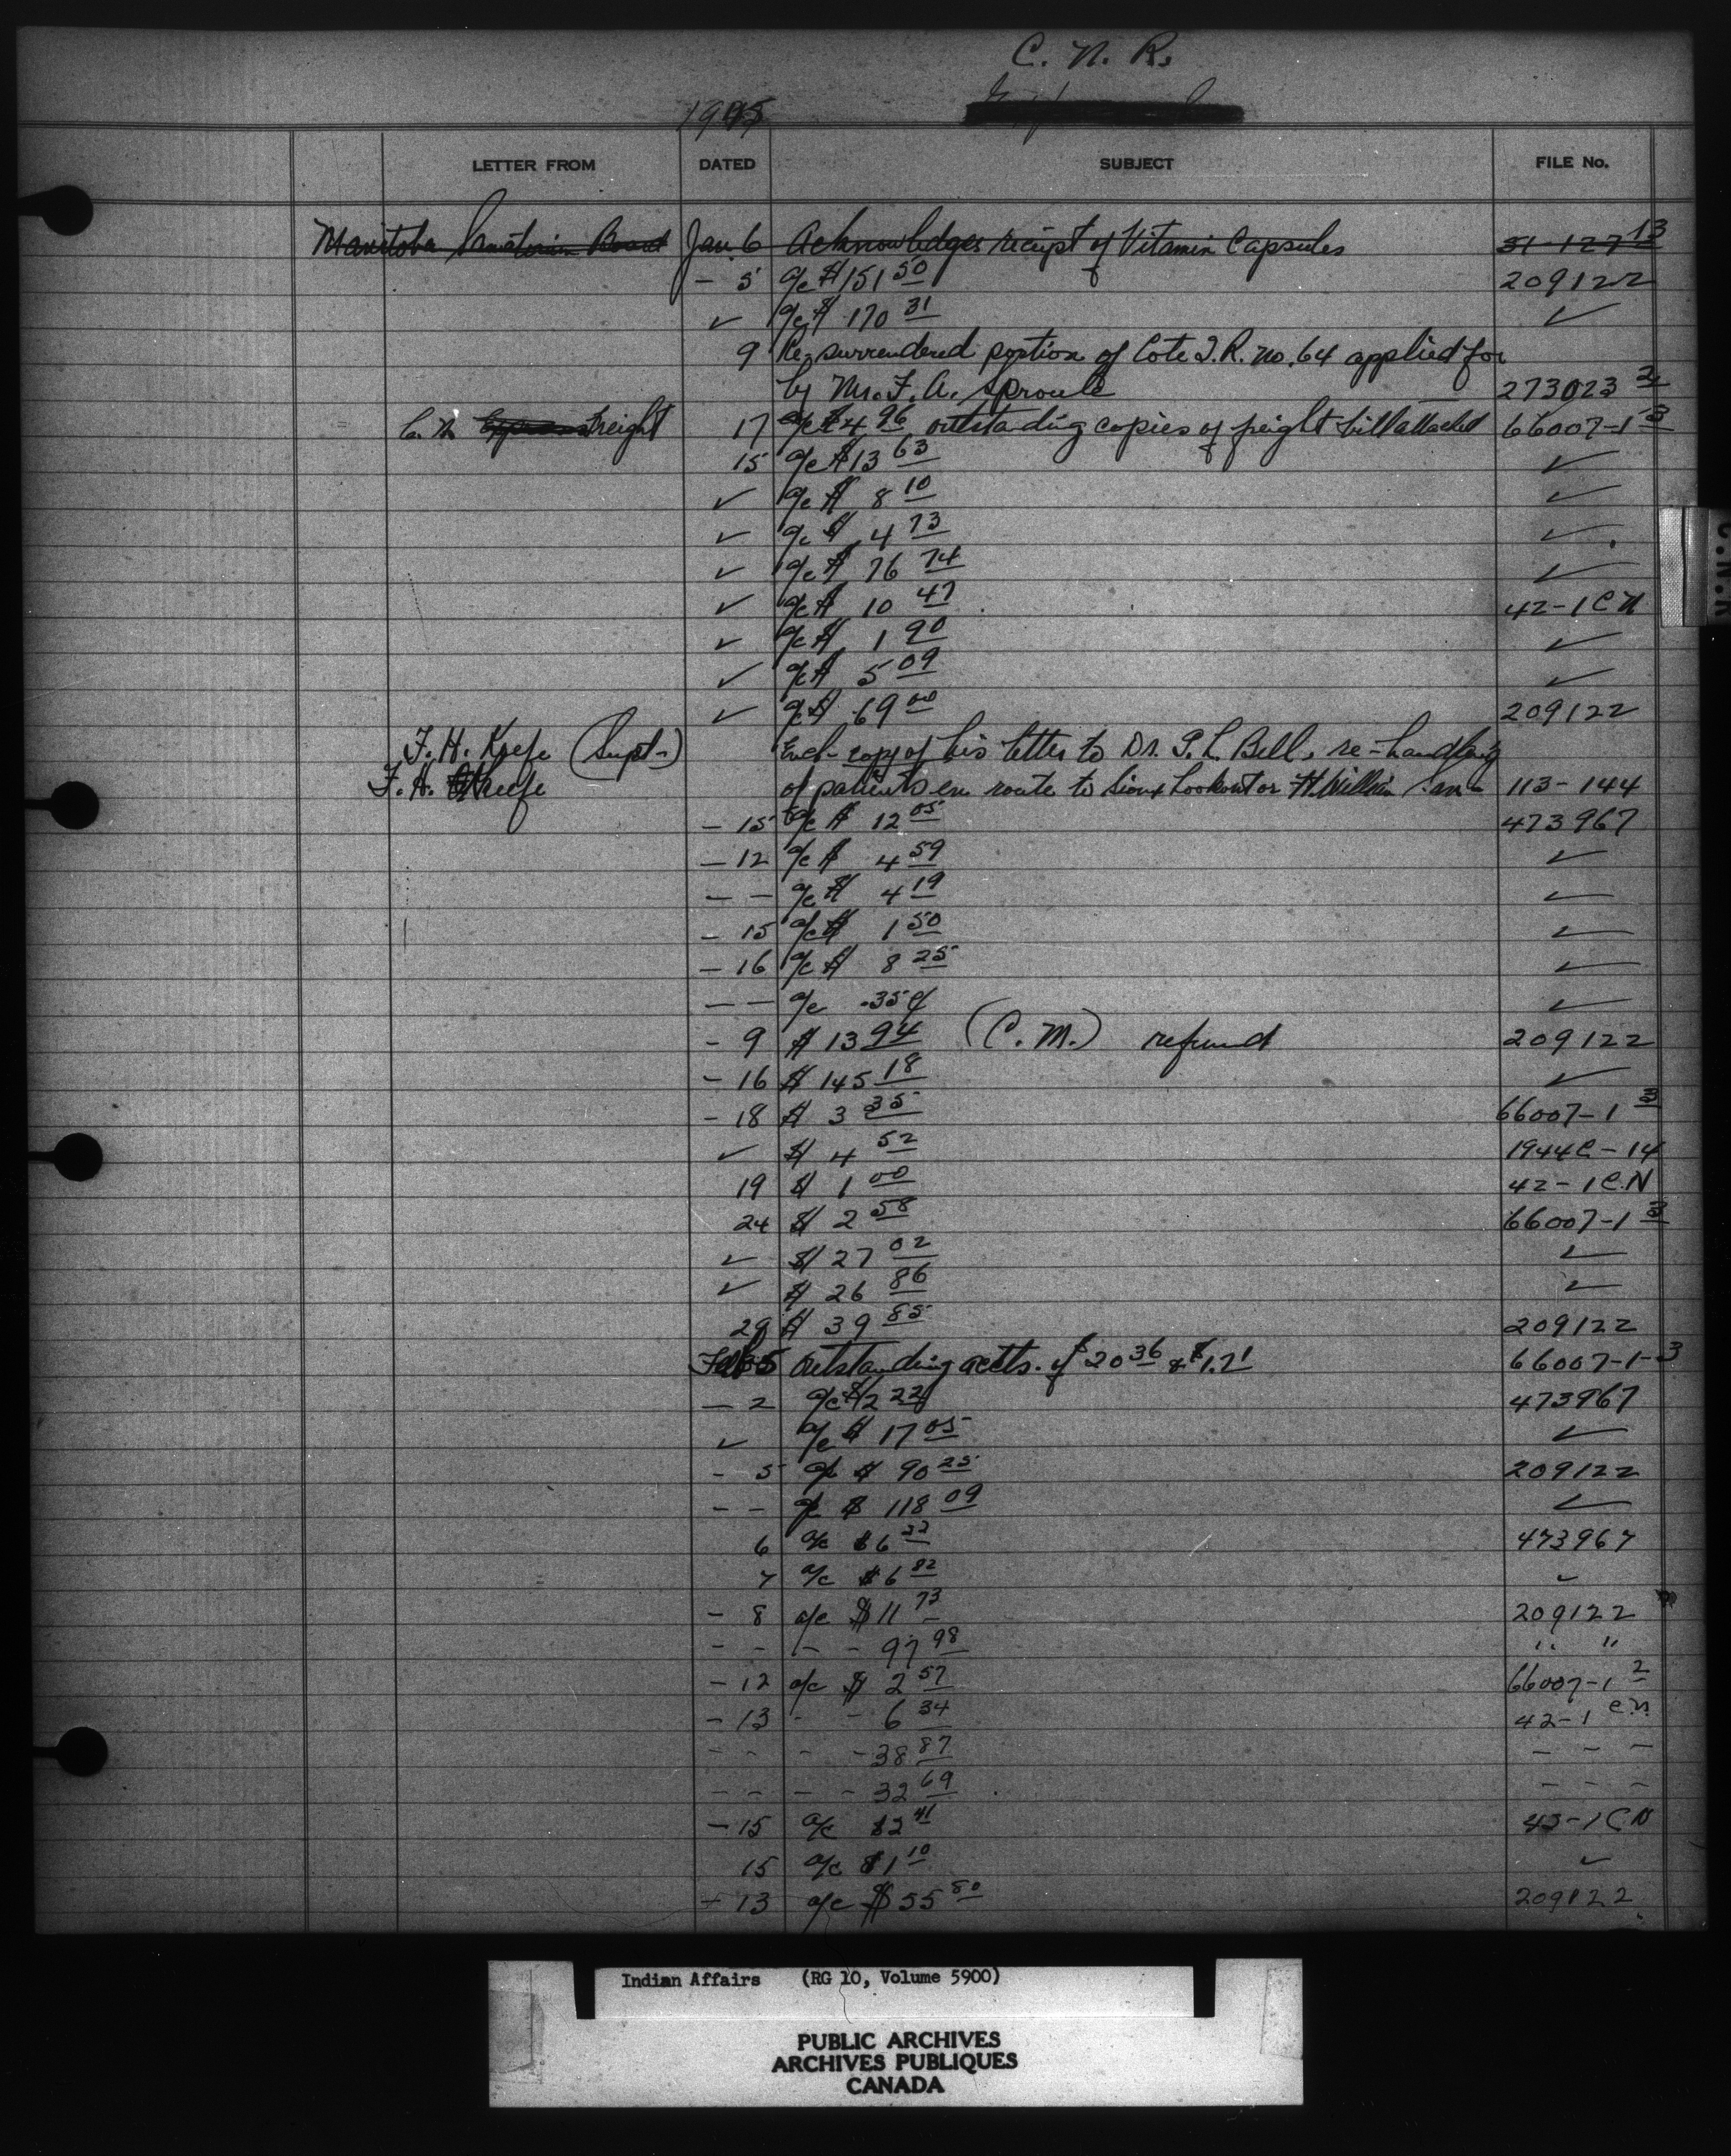 C. N. R.
1945
LETTER FROM DATED SUBJECT FILE No.
Manitoba Sanatorium Board Jan. 6 Acknowledges receipt of Vitamin Capsules 51-127 13
- 5 a/c $151 50 209122
✓ a/c $ 170 31 ✓
9 Re surrendered portion of Cote I.R. no. 64 applied for
by Mr. F. A. Sproule 273023 2
C. N. Express Freight 17 a/c $4 96 outstanding copies of freight bill attached 66007-1 3
15 a/c $13 63 ✓
✓ a/c $ 8 10 ✓
✓ a/c $ 4 73 ✓
✓ a/c $ 76 74 ✓
✓ a/c $ 10 47 42-1 CN
✓ a/c $ 1 90 ✓
✓ a/c $ 5 09 ✓
✓ a/c $ 69 00 209122
F. H. Keefe (Supt.) Encl. copy of his letter to Dr. P. L. Bell, re-handling
F. H. Keefe of patients en route to Sioux Lookout or Ft. William San 113-144
- 15 a/c $ 12 05 473967
- 12 a/c $ 4 59 ✓
- - a/c $ 4 19 ✓
- 15 a/c $ 1 50 ✓
- 16 a/c $ 8 25 ✓
- - a/c .35¢ ✓
- 9 $ 13 94 (C. M.) refund 209122
- 16 $ 145 18 ✓
- 18 $ 3 35 66007-1 3
✓ $ 4 52 1944C-14
19 $ 1 00 42-1 C.N
24 $ 2 58 66007-1 3
✓ $ 27 02 ✓
✓ $ 26 86 ✓
29 $ 39 85 209122
Feb 5 Outstanding accts. of $20 36 & $1.71 66007-1-3
- 2 a/c $2 22 473967
✓ a/c $ 17 05 ✓
- 5 a/c $ 90 25 209122
- - a/c $ 118 09 ✓
6 a/c $6 22 473967
7 a/c $6 82 ✓
- 8 a/c $11 73 209122
- - - - 97 98 " "
- 12 a/c $ 2 57 66007-1 2
- 13 - - 6 34 42-1 C.N.
- - - - 38 87 - - -
- - - - 32 69 - - -
- 15 a/c $2 41 43-1 CN
15 a/c $1 10 ✓
- 13 a/c $55 80 209122
C.N.R
Indian Affairs (RG 10, Volume 5900)
PUBLIC ARCHIVES
ARCHIVES PUBLIQUES
CANADA